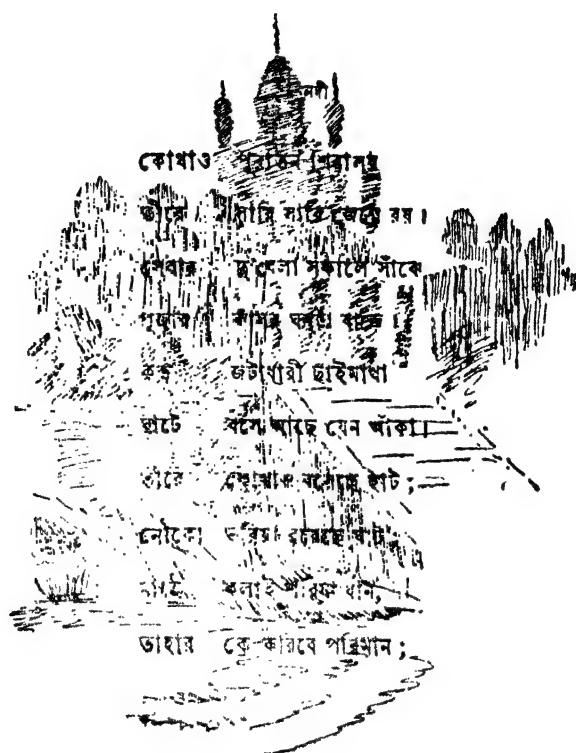 নদী
কোথাও পুরাতন শিবালয়
তীরে সারি সারি জেগে রয়।
সেথায় দু'বেলা সকালে সাঁঝে
পূজার কাঁসর ঘণ্টা বাজে
কত জটাধারী ছাইমাখা
ঘাটে বসে আছে যেন আঁকা।
তীরে কোথাও বসেছে হাট;
নৌকো ভরিয়া রয়েছে ঘাট,
মাঠে কলাই সরিষা ধান,
তাহার কে করিবে পরিমান;